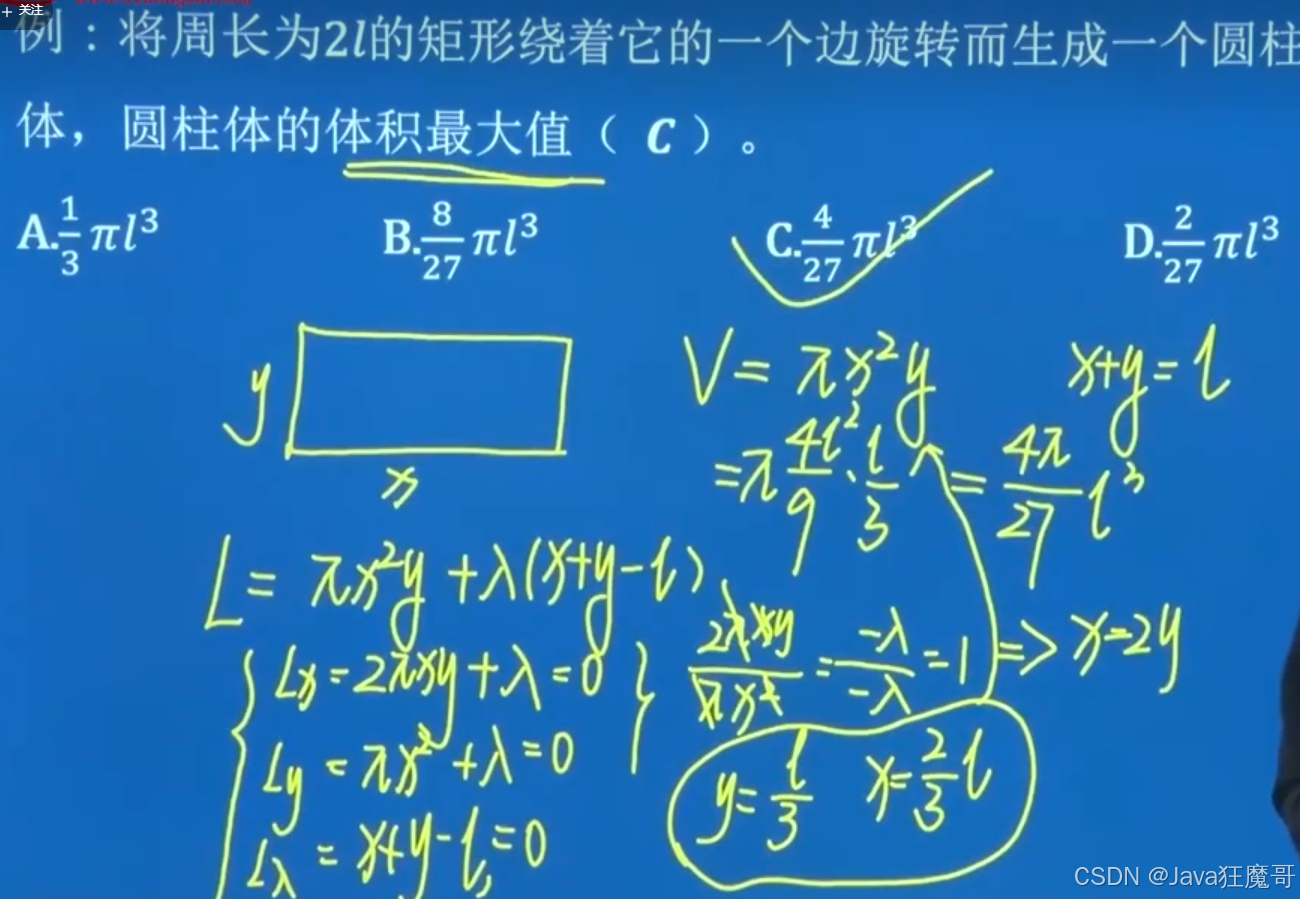 + 关注
例：将周长为2l的矩形绕着它的一个边旋转而生成一个圆柱
体，圆柱体的体积最大值（ C ）。
A. 1/3 πl³ B. 8/27 πl³ C. 4/27 πl³ D. 2/27 πl³
y
x
V = πx²y x+y = l
= π 4l²/9 · l/3 = 4π/27 l³
L = πx²y + λ(x+y-l)
Lx = 2πxy + λ = 0
Ly = πx² + λ = 0
Lλ = x+y-l = 0
2πxy/πx² = -λ/-λ = 1 => x=2y
y = l/3 x = 2/3 l
CSDN @Java狂魔哥